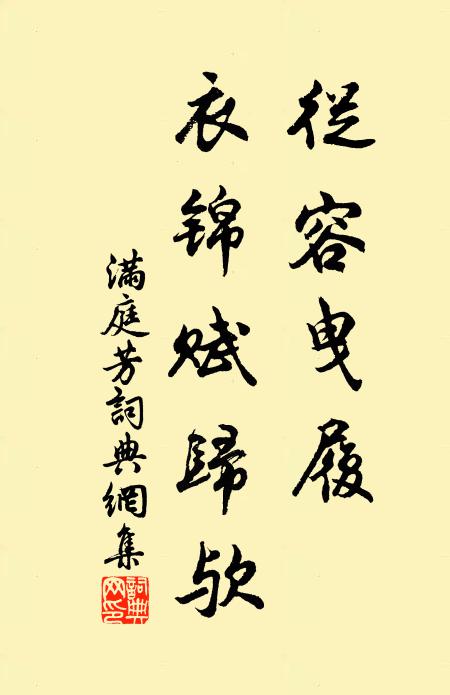 從容曳履
衣锦赋歸欤
滿庭芳詞典網集
詞典
网印